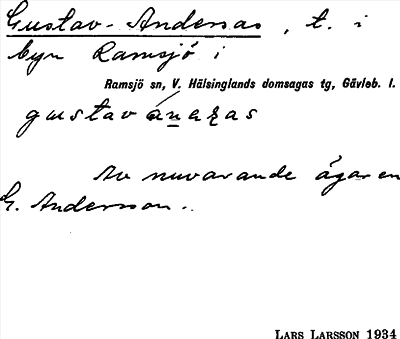 Gustav-Andersas, t. i
byn Ramsjö i
Ramsjö sn, V. Hälsinglands domsagas tg, Gävleb. l.
gustav ánaʀas
Av nuvarande ägaren
G. Andersson..
LARS LARSSON 1934